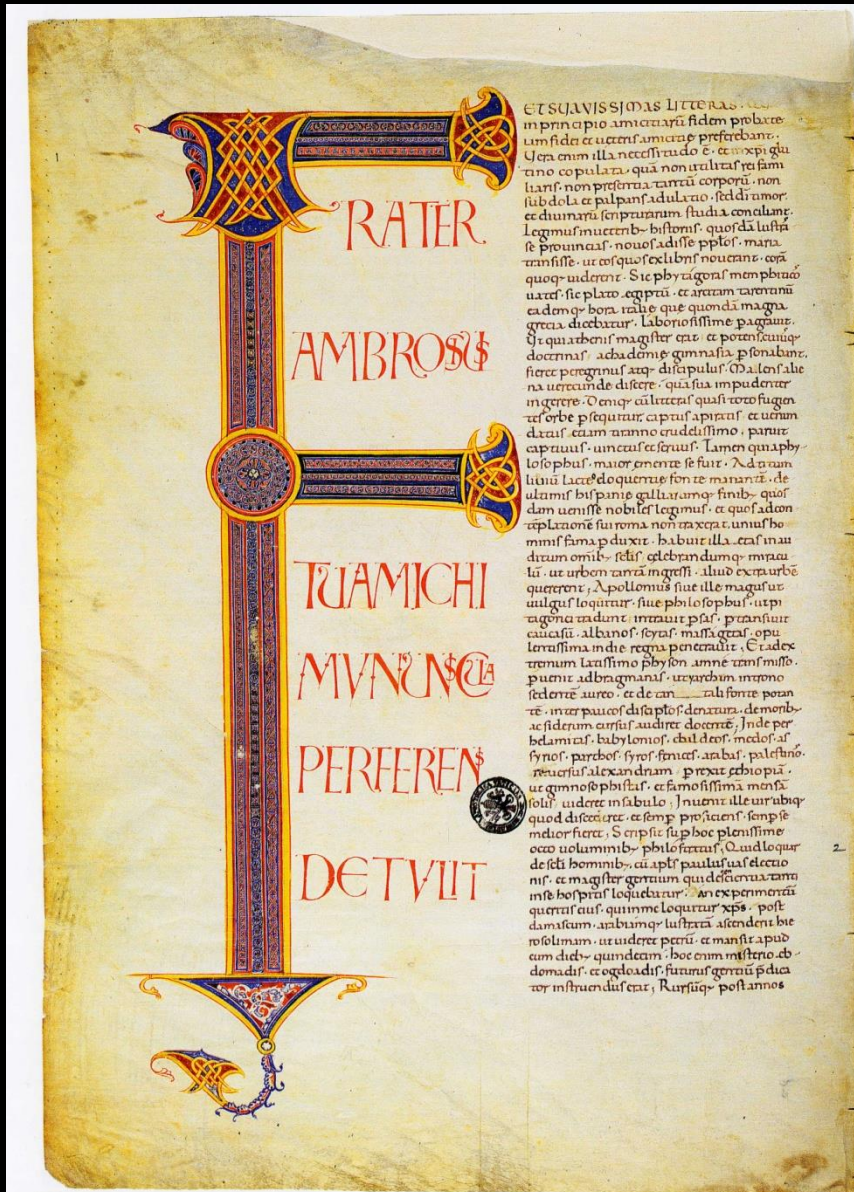 FRATER
AMBROSIUS
TUA MICHI
MVNUNSCULA
PERFERENS
DETVLIT
ET SUAVISSIMAS LITTERAS.
in principio amicitiarū fidem probate
iam fidei et ueteris amicitie preferebant.
Uera enim illa necessitudo ē. et xpi glu
tino copulata. quā non utilitas rei fami
liaris. non presentia tantū corporū. non
subdola et palpans adulatio. sed di timor.
et diuinarū scripturarum studia conciliant.
Legimus in ueterib; historiis. quosdā lustra
se prouincias. nouos adisse pplos. maria
transisse. ut eos quos ex libris nouerant. corā
quoq; uiderent. Sic phytagoras memphiticos
uates. sic plato egiptū. et arcitam tarentinū
eademq; hora italie que quondā magna
grecia dicebatur. laboriosissime pagrauit.
Ut qui athenis magister erat. et potens. cuiusq;
doctrinas achademie gimnasia psonabant.
fieret peregrinus atq; discipulus. Malens alie
na uerecunde discere. quā sua impudenter
ingerere. Deniq; cū litteras quasi toto fugien
tes orbe psequitur. captus a piratis et uenun
datus etiam tiranno crudelissimo paruit
captiuus. uinctus et seruus. Tamen quia phy
losophus. maior emente se fuit. Ad titum
liuiū lacteo eloquentie fonte manantē. de
ultimis hispanie galliarumq; finib; quos
dam uenisse nobiles legimus. et quos ad con
tēplationē sui roma non traxerat. unius ho
minis fama pduxit. habuit illa etas in au
ditum omnib; sclis celebrandumq; miracu
lū. ut urbem tantā ingressi. aliud extra urbē
quererent; Apollonius siue ille magus ut
uulgus loquitur. siue philosophus. ut pi
tagorici tradunt. intrauit psas. ptransiuit
caucasū. albanos. scytas. massagetas. opu
lentissima indie regna penetrauit; Et ad ex
tremum latissimo physon amne transmisso.
puenit ad bragmanas. ut yarchim in trono
sedentē aureo. et de tantali fonte potan
tē. inter paucos discipłos. de natura. de morib;
ac siderum cursu audiret docentē; Inde per
helamitas. babylonios. chaldeos. medos. as
syrios. parthos. syros. fenices. arabas. palestinos.
reuersus alexandriam prexit ethiopiā.
ut gimnosophistas. et famosissimā mensā
solis uideret in sabulo; Inuenit ille uir ubiq;
quod disceret. et semp proficiens. semp se
melior fieret; Scripsit sup hoc plenissime
octo voluminib; philostratus; Quid loquar
de scli hominib;. cū apls paulus uas electio
nis. et magister gentium qui de scientia tanti
in se hospitis loquebatur. an experimentū
queritis eius. qui in me loquitur xps. post
damascum. arabiamq; lustratā ascenderit hie
rosolimam. ut uideret petrū. et mansit apud
eum dieb; quindecim. hoc enim misterio eb
domadis. et ogdoadis. futurus gentiū pdica
tor instruendus erat; Rursūq; post annos
2